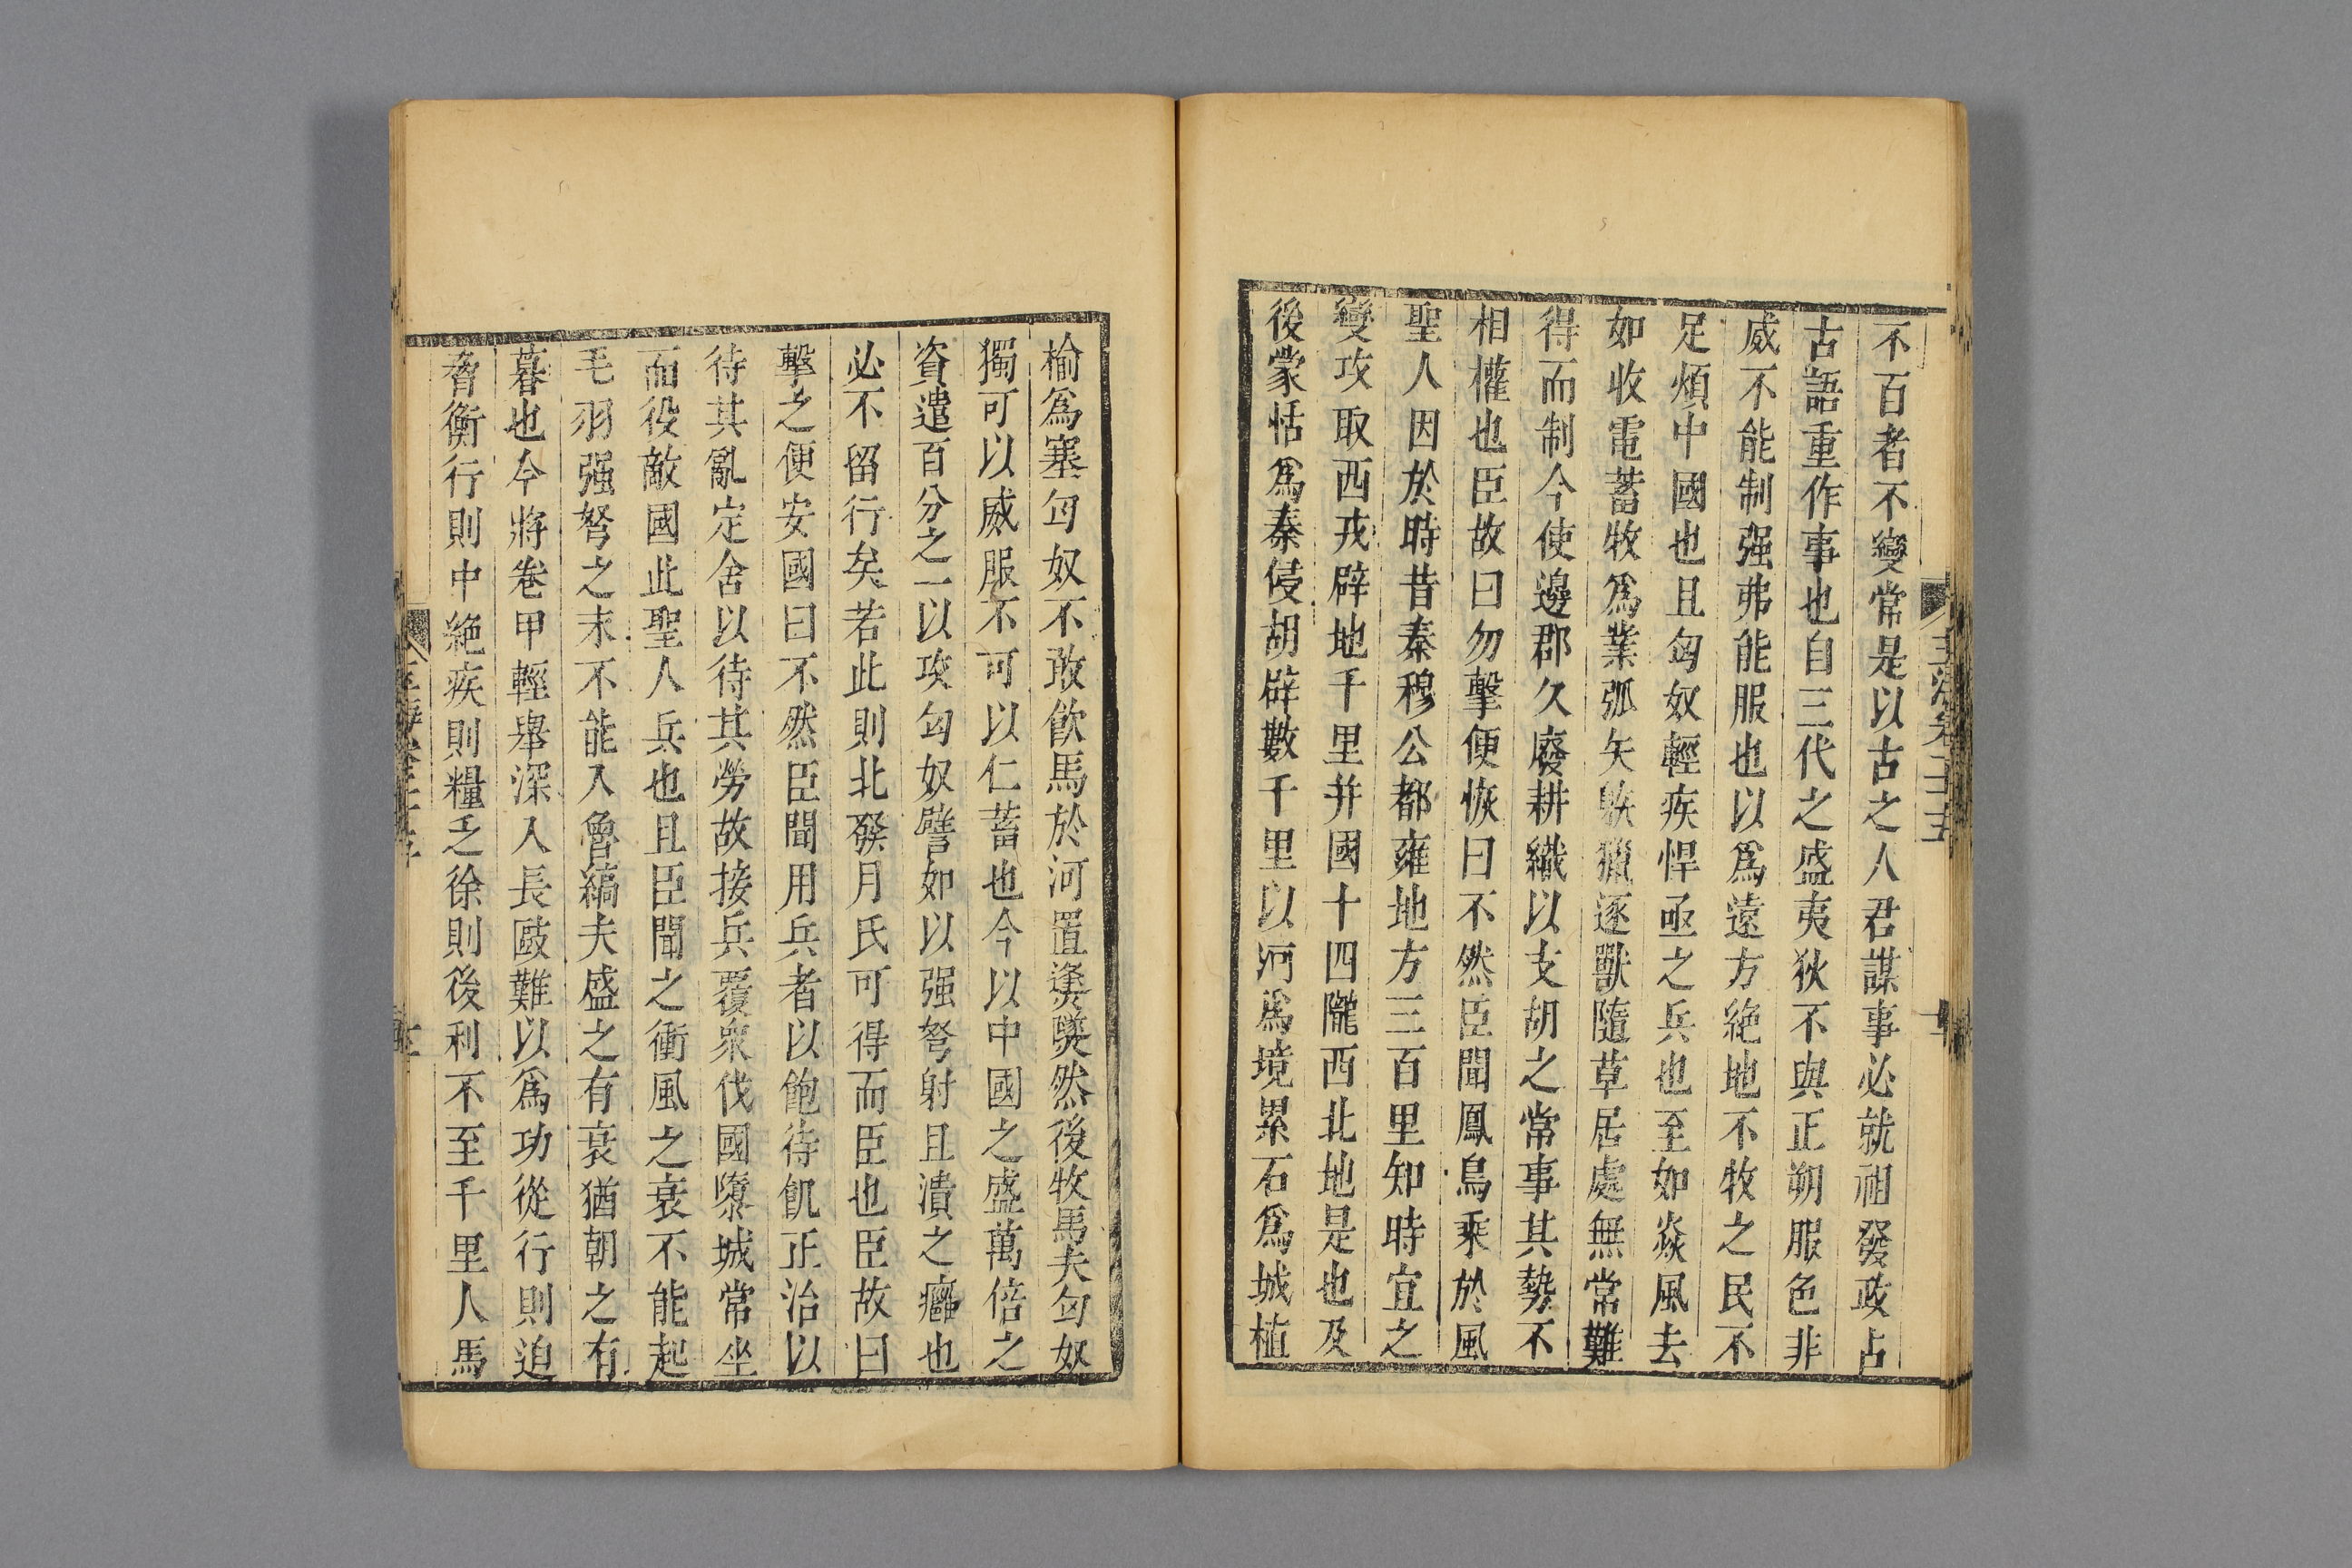 不百者不變常是以古之人君謀事必就祖發政占
古語重作事也自三代之盛夷狄不與正朔服色非
威不能制强弗能服也以爲遠方絶地不牧之民不
足煩中國也且匈奴輕疾悍亟之兵也至如猋風去
如收電蓄牧爲業弧矢𤠔獵逐獸隨草居處無常難
得而制今使邊郡久廢耕織以支胡之常事其勢不
相權也臣故曰勿擊便恢曰不然臣聞鳳鳥乘於風
聖人因於時昔秦穆公都雍地方三百里知時宜之
變攻取西戎辟地千里并國十四隴西北地是也及
後蒙恬爲秦侵胡辟數千里以河爲境累石爲城植
榆爲塞匈奴不敢飲馬於河置㷭㷸然後牧馬夫匈奴
獨可以威服不可以仁蓄也今以中國之盛萬倍之
資遣百分之一以攻匈奴譬如以强弩射且潰之癰也
必不留行矣若此則北發月氏可得而臣也臣故曰
擊之便安國曰不然臣聞用兵者以飽待飢正治以
待其亂定舍以待其勞故接兵覆衆伐國隳城常坐
而役敵國此聖人兵也且臣聞之衝風之衰不能起
毛羽强弩之末不能入魯縞夫盛之有衰猶朝之有
暮也今將卷甲輕舉深入長敺難以爲功從行則迫
脅衡行則中絶疾則糧乏徐則後利不至千里人馬